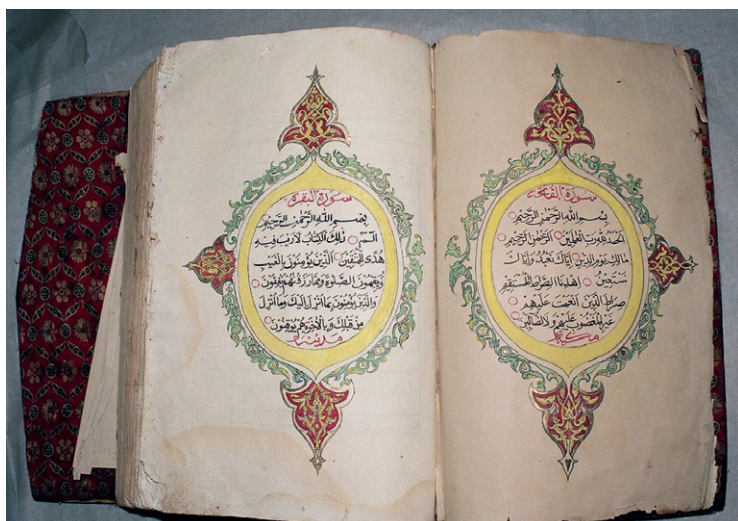 سورة الفاتحة
بسم الله الرحمن الرحيم
الحمد لله رب العلمين الرحمن الرحيم
مالك يوم الدين اياك نعبد واياك
نستعين اهدنا الصراط المستقيم
صراط الذين انعمت عليهم
غير المغضوب عليهم ولا الضالين
مكية
سورة البقرة
بسم الله الرحمن الرحيم
الم ذلك الكتاب لا ريب فيه
هدى للمتقين الذين يؤمنون بالغيب
ويقيمون الصلوة ومما رزقنهم ينفقون
والذين يؤمنون بما انزل اليك وما انزل
من قبلك وبالاخرة هم يوقنون
مدنية